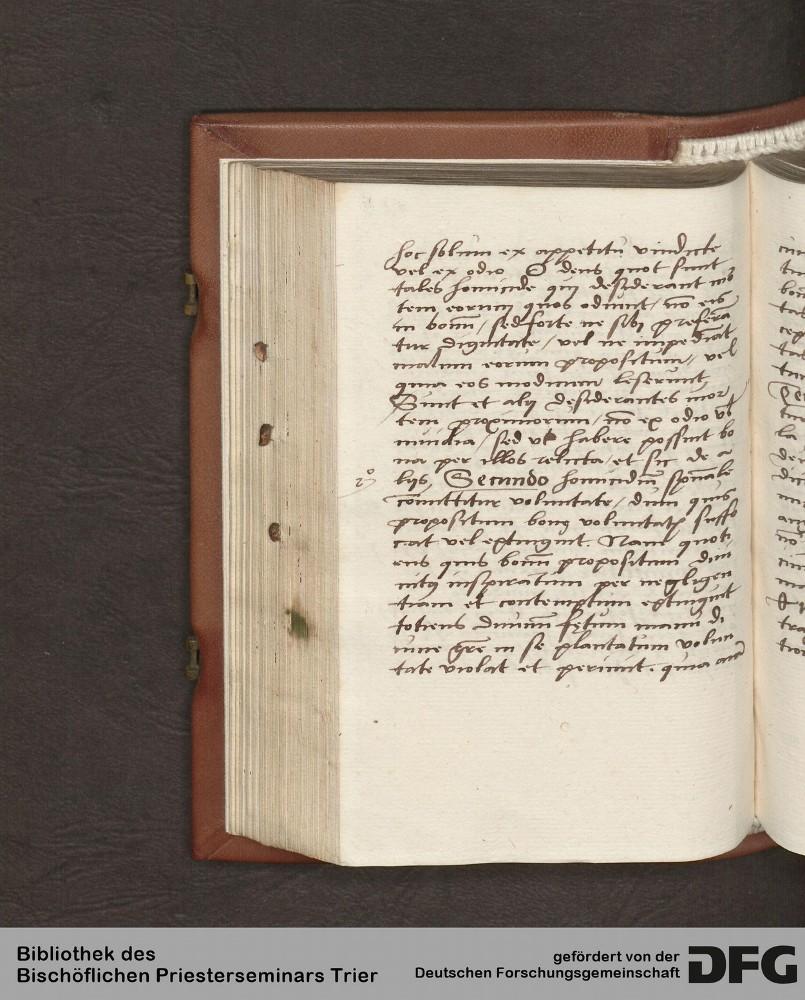 hoc solum ex appetitu vindicte
vel ex odio O deus quot sunt
tales homicide qui desiderant mor
tem eorum quos odiunt / no eis
in bonu / sed forte ne sibi prefera
tur dignitate / vel ne impediat
malum eorum propositum / vel
quia eos modicum leserunt
Sunt et alij desiderantes mor
tem proximorum / no ex odio vl
inuidia / sed vt habere possint bo
na per illos relicta / et sic de a
2º
lijs, Secundo homicidiu spuale
comittitur voluntate / dum quis
propositum bone voluntatis suffo
cat vel extinguit. Nam quoti
ens quis bonu propositum diui
nitus inspiratum per negligen
tiam et contemptum extinguit
totiens diuinu fetum manu di
uine gre in se plantatum volun
tate violat et perimit. quia
Bibliothek des
Bischöflichen Priesterseminars Trier
gefördert von der
Deutschen Forschungsgemeinschaft
DFG